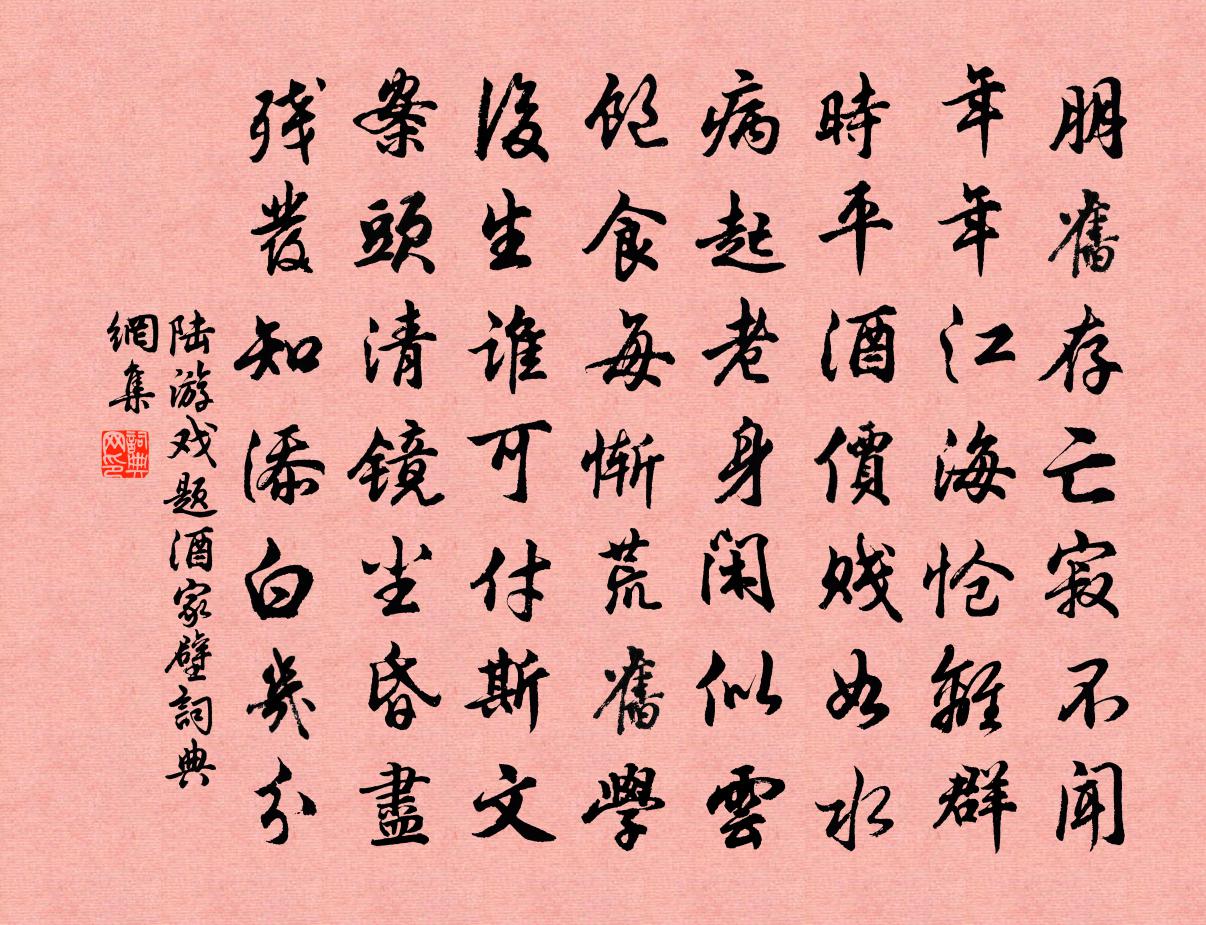 朋舊存亡寂不聞
年年江海愴離群
時平酒價賤如水
病起老身閑似雲
飽食每慚荒舊學
後生誰可付斯文
案頭清鏡塵昏盡
殘發知添白幾分
陆游戏题酒家壁詞典
網集
詞典网印